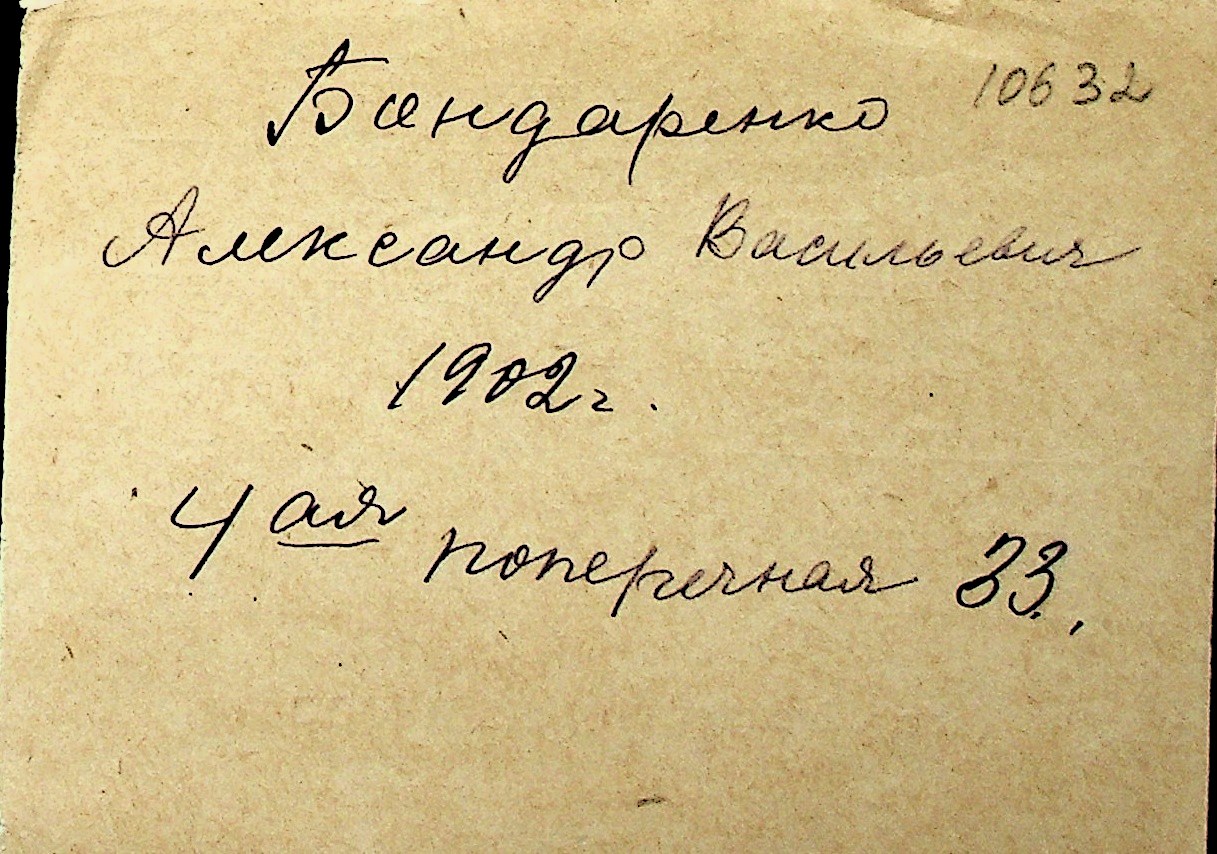 Бондаренко 10632
Александр Васильевич
1902 г.
4ая поперечная 33.